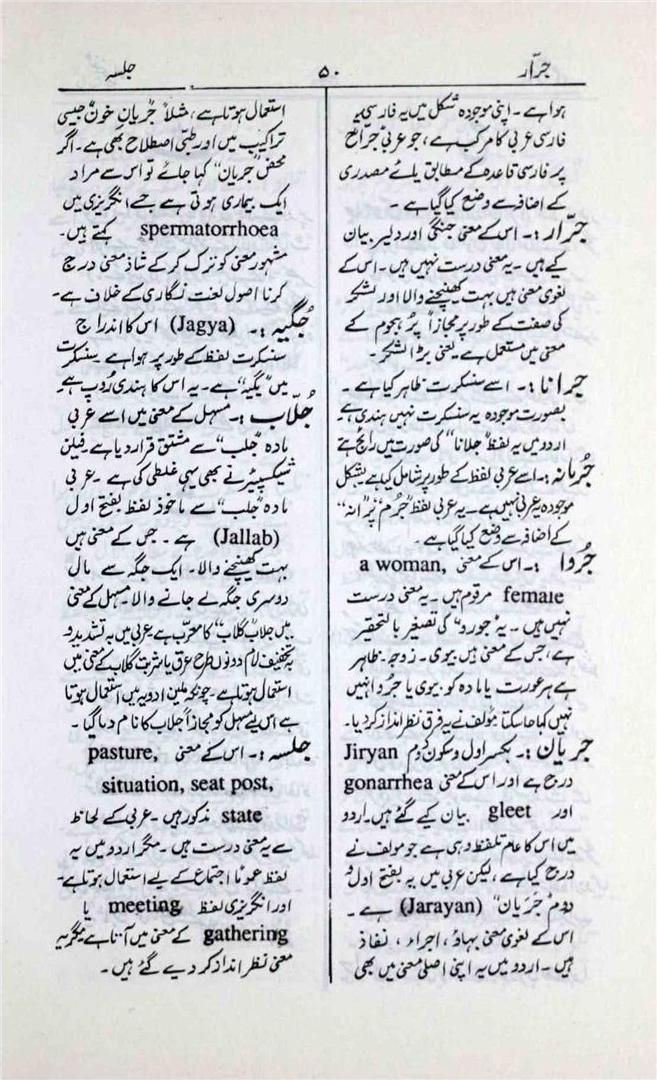 جرّار
۵۰
جلسہ
ہوا ہے۔ اپنی موجودہ شکل میں یہ فارسی یہ
فارسی عربی کا مرکب ہے، جو عربی جراح
پر فارسی قاعدہ کے مطابق یائے مصدری
کے اضافہ سے وضع کیا گیا ہے۔
جرّار :۔ اس کے معنی جنگی اور دلیر بیان
کیے ہیں۔ یہ معنی درست نہیں ہیں۔ اس کے
لغوی معنی ہیں بہت کھینچنے والا اور لشکر
کی صفت کے طور پر مجازاً پُر ہجوم کے
معنی میں مستعمل ہے یعنی بڑا لشکر۔
جرانا :۔ اسے سنسکرت ظاہر کیا ہے۔
بصورت موجودہ یہ سنسکرت نہیں ہندی ہے
اردو میں یہ لفظ "جلانا" کی صورت میں رائج ہے
جُرمانہ :۔ اسے عربی لفظ کے طور پر شامل کیا ہے بشکل
موجودہ یہ عربی نہیں ہے۔ یہ عربی لفظ "جُرم" پر "انہ"
کے اضافہ سے وضع کیا گیا ہے۔
جُروا :۔ اس کے معنی a woman,
female مرقوم ہیں۔ یہ معنی درست
نہیں ہیں۔ یہ "جورو" کی تصغیر بالتحقیر
ہے، جس کے معنی ہیں بیوی۔ زوجہ۔ ظاہر
ہے ہر عورت یا مادہ کو بیوی یا جُروا نہیں
نہیں کہا جاسکتا مولف نے یہ فرق نظر انداز کر دیا۔
جریان :۔ بکسر اول و سکون دوم Jiryan
درج ہے اور اس کے معنی gonarrhea
اور gleet بیان کیے گئے ہیں۔ اردو
میں اس کا عام تلفظ وہی ہے جو مولف نے
درج کیا ہے، لیکن عربی میں یہ بفتح اول و
دوم "جَرَیان" (Jarayan) ہے۔
اس کے لغوی معنی بہاؤ، اجراء، نفاذ
ہیں۔ اردو میں یہ اپنی اصلی معنی میں بھی
استعمال ہوتا ہے، مثلاً جُریانِ خون جیسی
تراکیب میں اور طبّی اصطلاح بھی ہے۔ اگر
محض "جریان" کہا جائے تو اس سے مراد
ایک بیماری ہوتی ہے جسے انگریزی میں
spermatorrhoea کہتے ہیں۔
مشہور معنی کو ترک کر کے شاذ معنی درج
کرنا اصول لغت نگاری کے خلاف ہے۔
جُگیہ :۔ (Jagya) اس کا اندراج
سنسکرت لفظ کے طور پر ہوا ہے۔ سنسکرت
میں "یگیہ" ہے۔ یہ اس کا ہندی رُوپ ہے
جُلّاب :۔ مسہل کے معنی میں اسے عربی
مادہ "جلب" سے مشتق قرار دیا ہے۔ فیلن
شیکسپیئر نے بھی یہی غلطی کی ہے۔ عربی
مادہ "جلب" سے ماخوذ لفظ بفتح اول
(Jallab) ہے۔ جس کے معنی ہیں
بہت کھینچنے والا۔ ایک جگہ سے مال
دوسری جگہ لے جانے والا۔ مسہل کے معنی
میں جلاب "گلاب" کا معرّب ہے عربی میں بہ تشدید و
بہ تخفیف لام دونوں طرح عرق یا شربت گلاب کے معنی میں
استعمال ہوتا ہے۔ چونکہ ملین ادویہ میں استعمال ہوتا
ہے اس لیے مسہل کو مجازاً جلاب کا نام دیا گیا۔
جلسہ :۔ اس کے معنی pasture,
situation, seat post,
state مذکور ہیں۔ عربی کے لحاظ
سے یہ معنی درست ہیں۔ مگر اردو میں یہ
لفظ عموماً اجتماع کے لیے استعمال ہوتا ہے۔
اور انگریزی لفظ meeting یا
gathering کے معنی میں آتا ہے مگر یہ
معنی نظر انداز کر دیے گئے ہیں۔